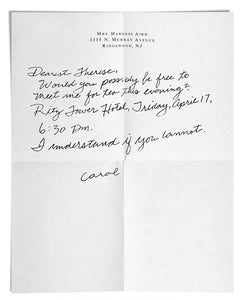 MRS. HARGESS AIRD
1115 N. MURRAY AVENUE
RIDGEWOOD, NJ
Dearest Therese,
Would you possibly be free to
meet me for tea this evening?
Ritz Tower Hotel, Friday, April 17,
6:30 pm.
I understand if you cannot.
Carol